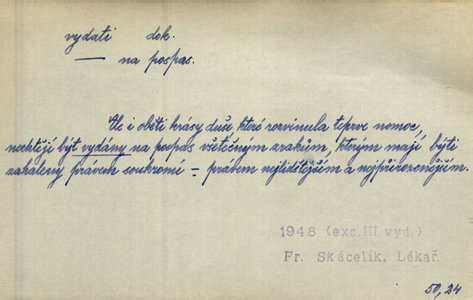 vydati dok.
— na pospas.
Ale i oběti krásy duše, které rozvinula teprve nemoc,
nechtějí být vydány na pospas všetečným zrakům, kterým mají býti
zahaleny právem soukromí – právem nejlidštějším a nejpřirozenějším.
1948 (exc.III.vyd.)
Fr. Skácelík, Lékař.
50, 24